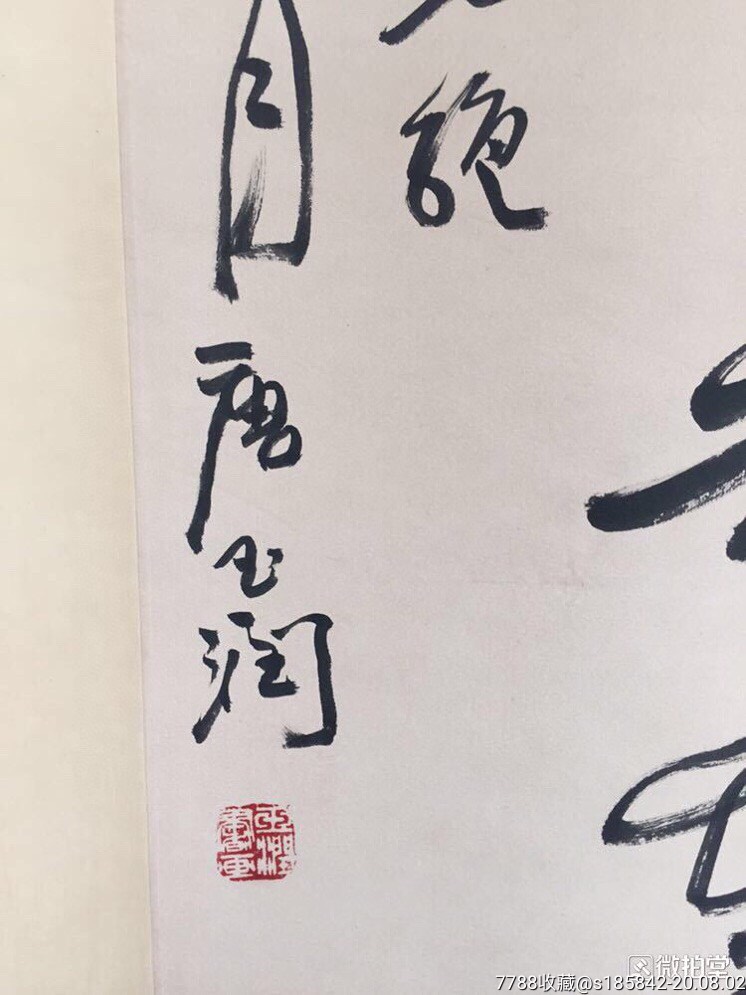 绝
月唐玉润
玉潤書画
微拍堂
7788收藏@s185842-20.08.02